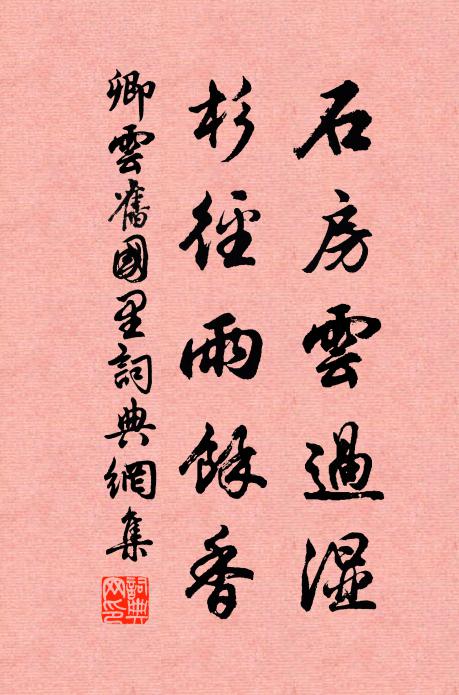 石房雲過濕
杉徑雨餘香
卿雲舊國里詞典網集
詞典網印